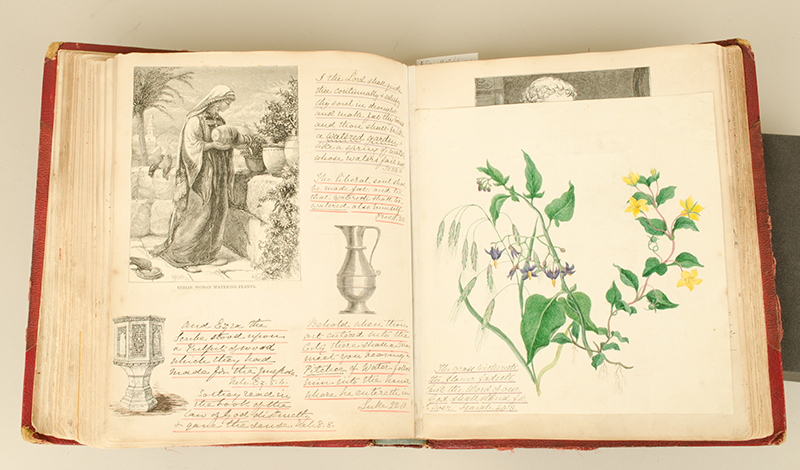 & the Lord shall guide
thee continually & satisfy
thy soul in drought
and make fat thy bones
and thou shalt be like
a watered garden
like a spring of water
whose waters fail not
The liberal soul shall
be made fat and he
that watereth shall be
watered also himself
Prov
SYRIAN WOMAN WATERING PLANTS.
And Ezra the
Scribe stood upon
a Pulpit of wood
which they had
made for the purpose
Neh. 8.
So they read in
the book of the
law of God distinctly
& gave the sense. Neh 8. 8.
Behold when ye
are entered into the
City there shall a man
meet you bearing a
Pitcher of Water follow
him into the house
where he entereth in
Luke 22.10
The grass withereth
the flower fadeth
but the Word of our
God shall stand for
ever Isaiah 40.8